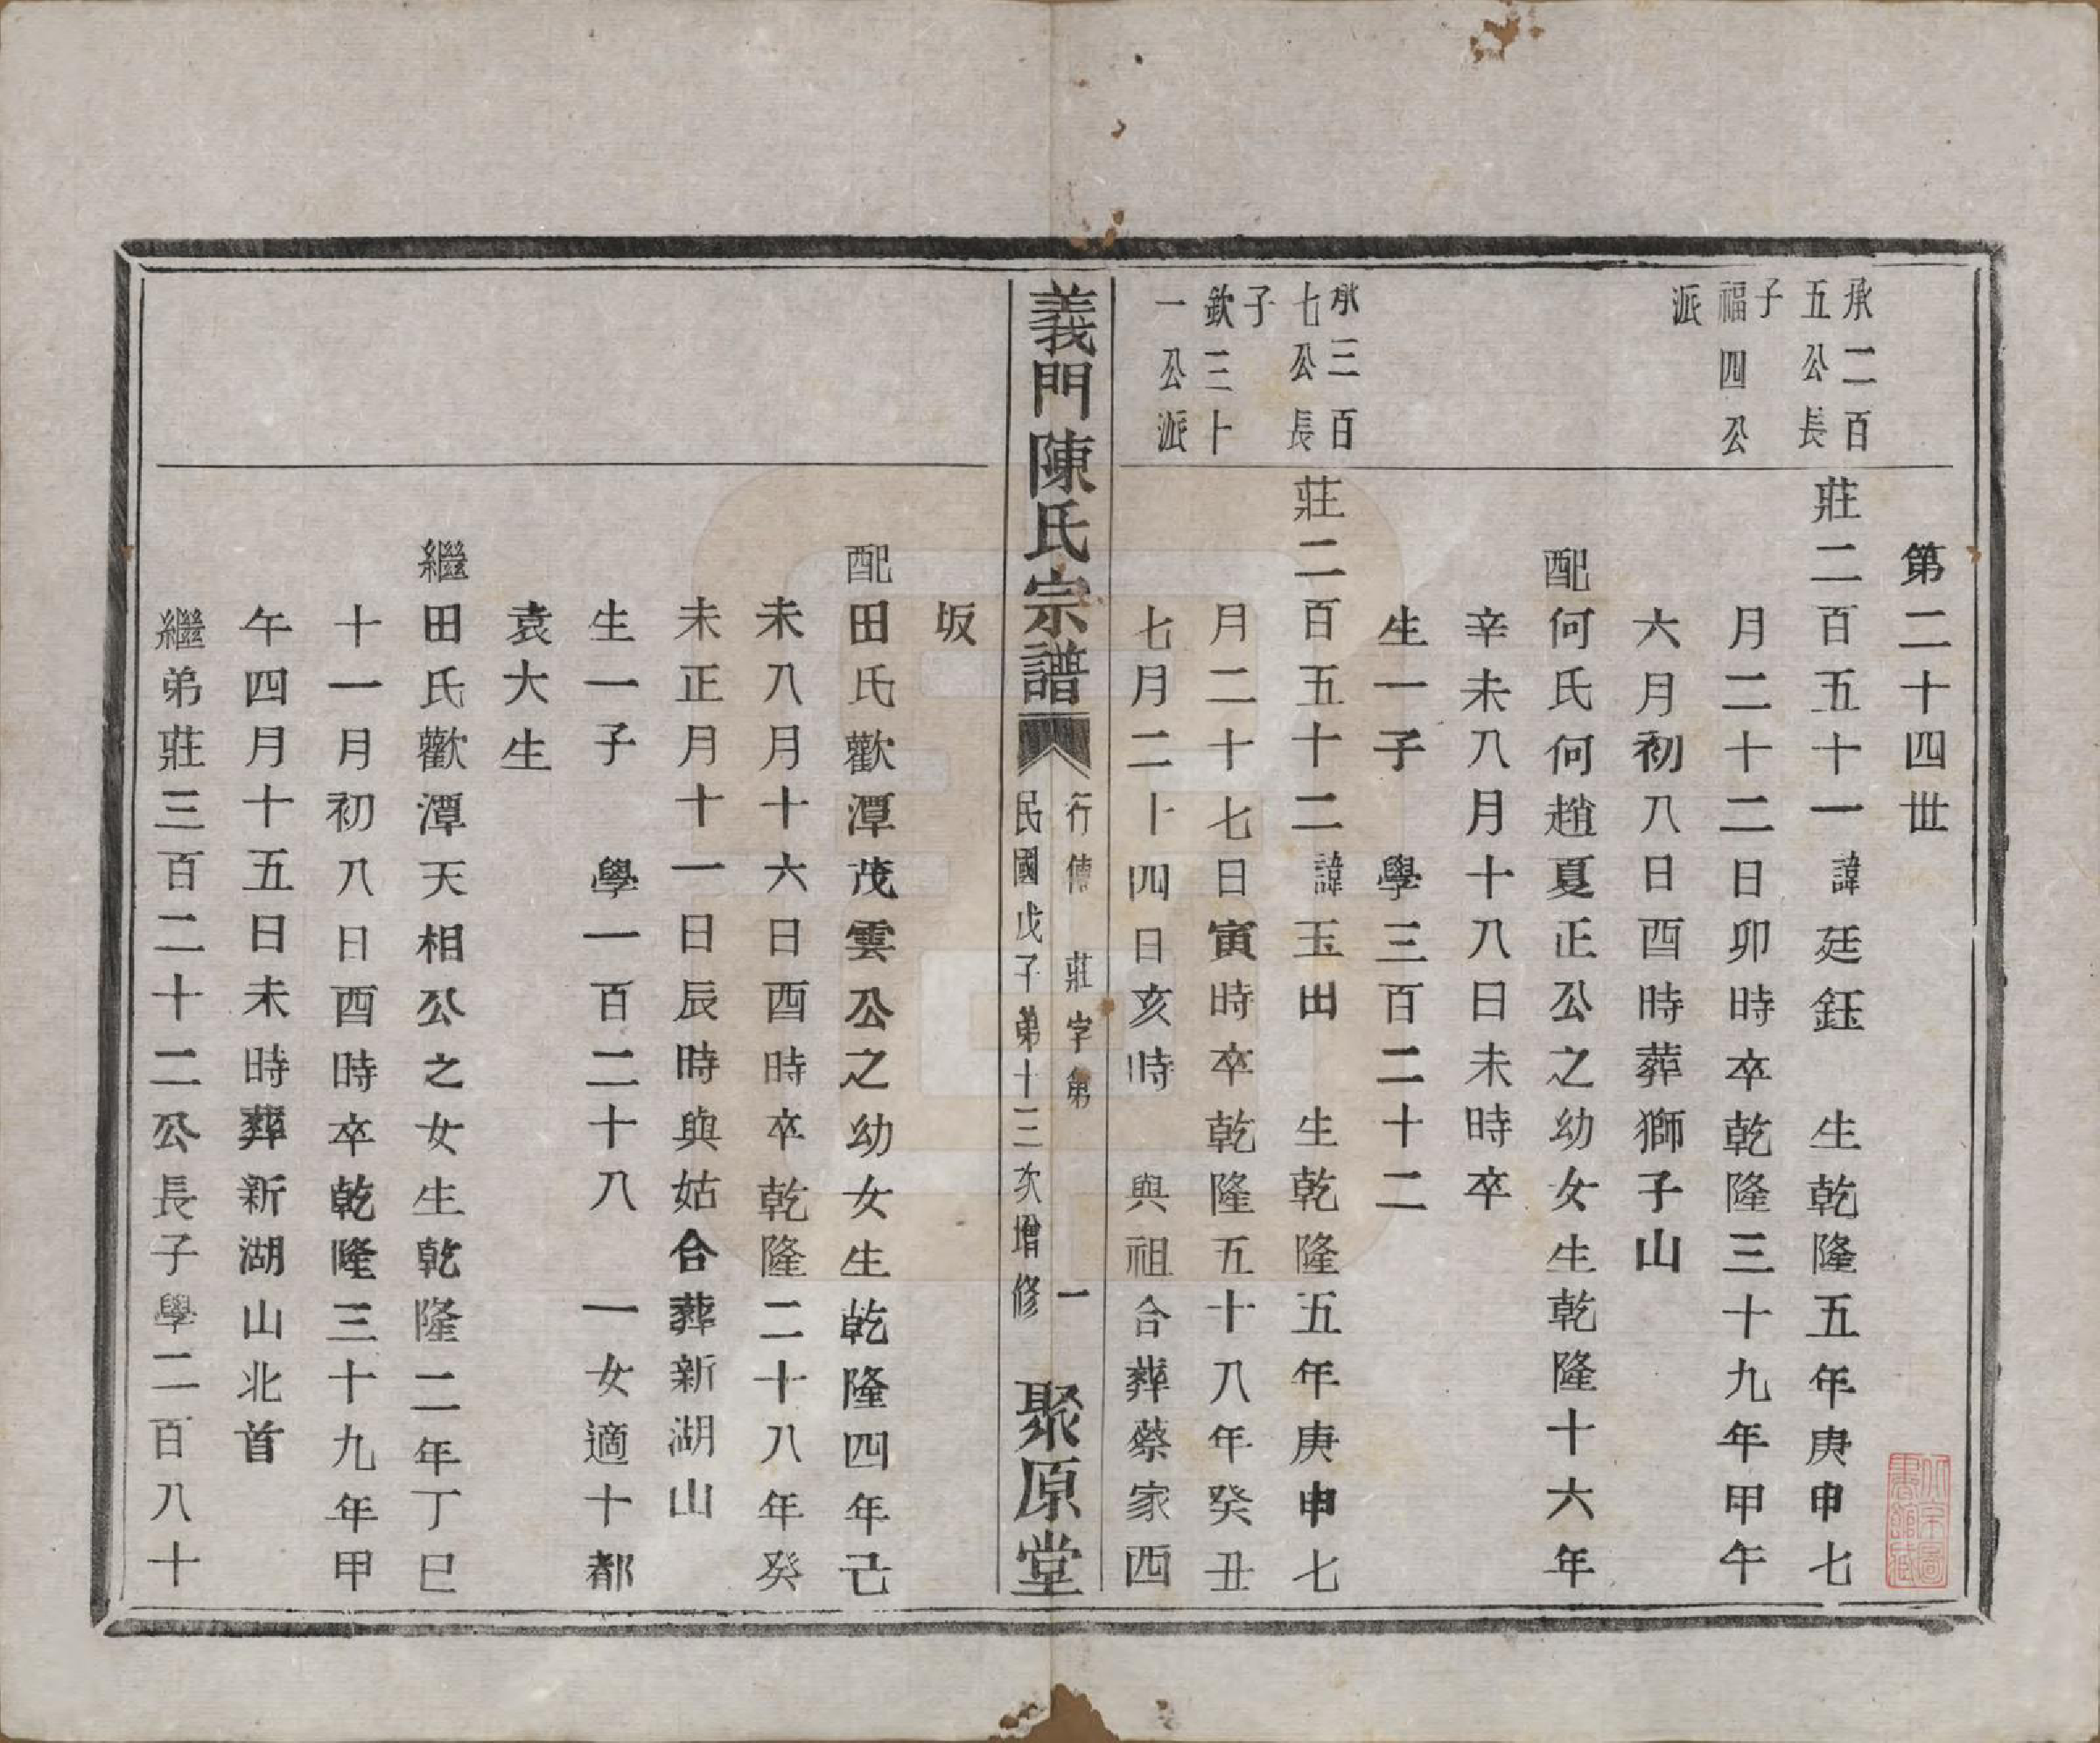 第二十四世
承二百
五公長
子
福四公
派
莊二百五十一諱廷鈺　生乾隆五年庚申七
月二十二日卯時卒乾隆三十九年甲午
六月初八日酉時葬獅子山
配何氏何趙夏正公之幼女生乾隆十六年
辛未八月十八日未時卒
生一子　學三百二十二
承三百
七公長
子
欽三十
一公派
莊二百五十二諱玉田　生乾隆五年庚申七
月二十七日寅時卒乾隆五十八年癸丑
七月二十四日亥時　與祖合葬蔡家西
義門陳氏宗譜
行傳　莊字第　一
民國戊子弟十三次增修
聚原堂
坂
配田氏歡潭茂雲公之幼女生乾隆四年己
未八月十六日酉時卒乾隆二十八年癸
未正月十一日辰時與姑合葬新湖山
生一子　學一百二十八　一女適十都
袁大生
繼田氏歡潭天相公之女生乾隆二年丁巳
十一月初八日酉時卒乾隆三十九年甲
午四月十五日未時葬新湖山北首
繼弟莊三百二十二公長子學二百八十